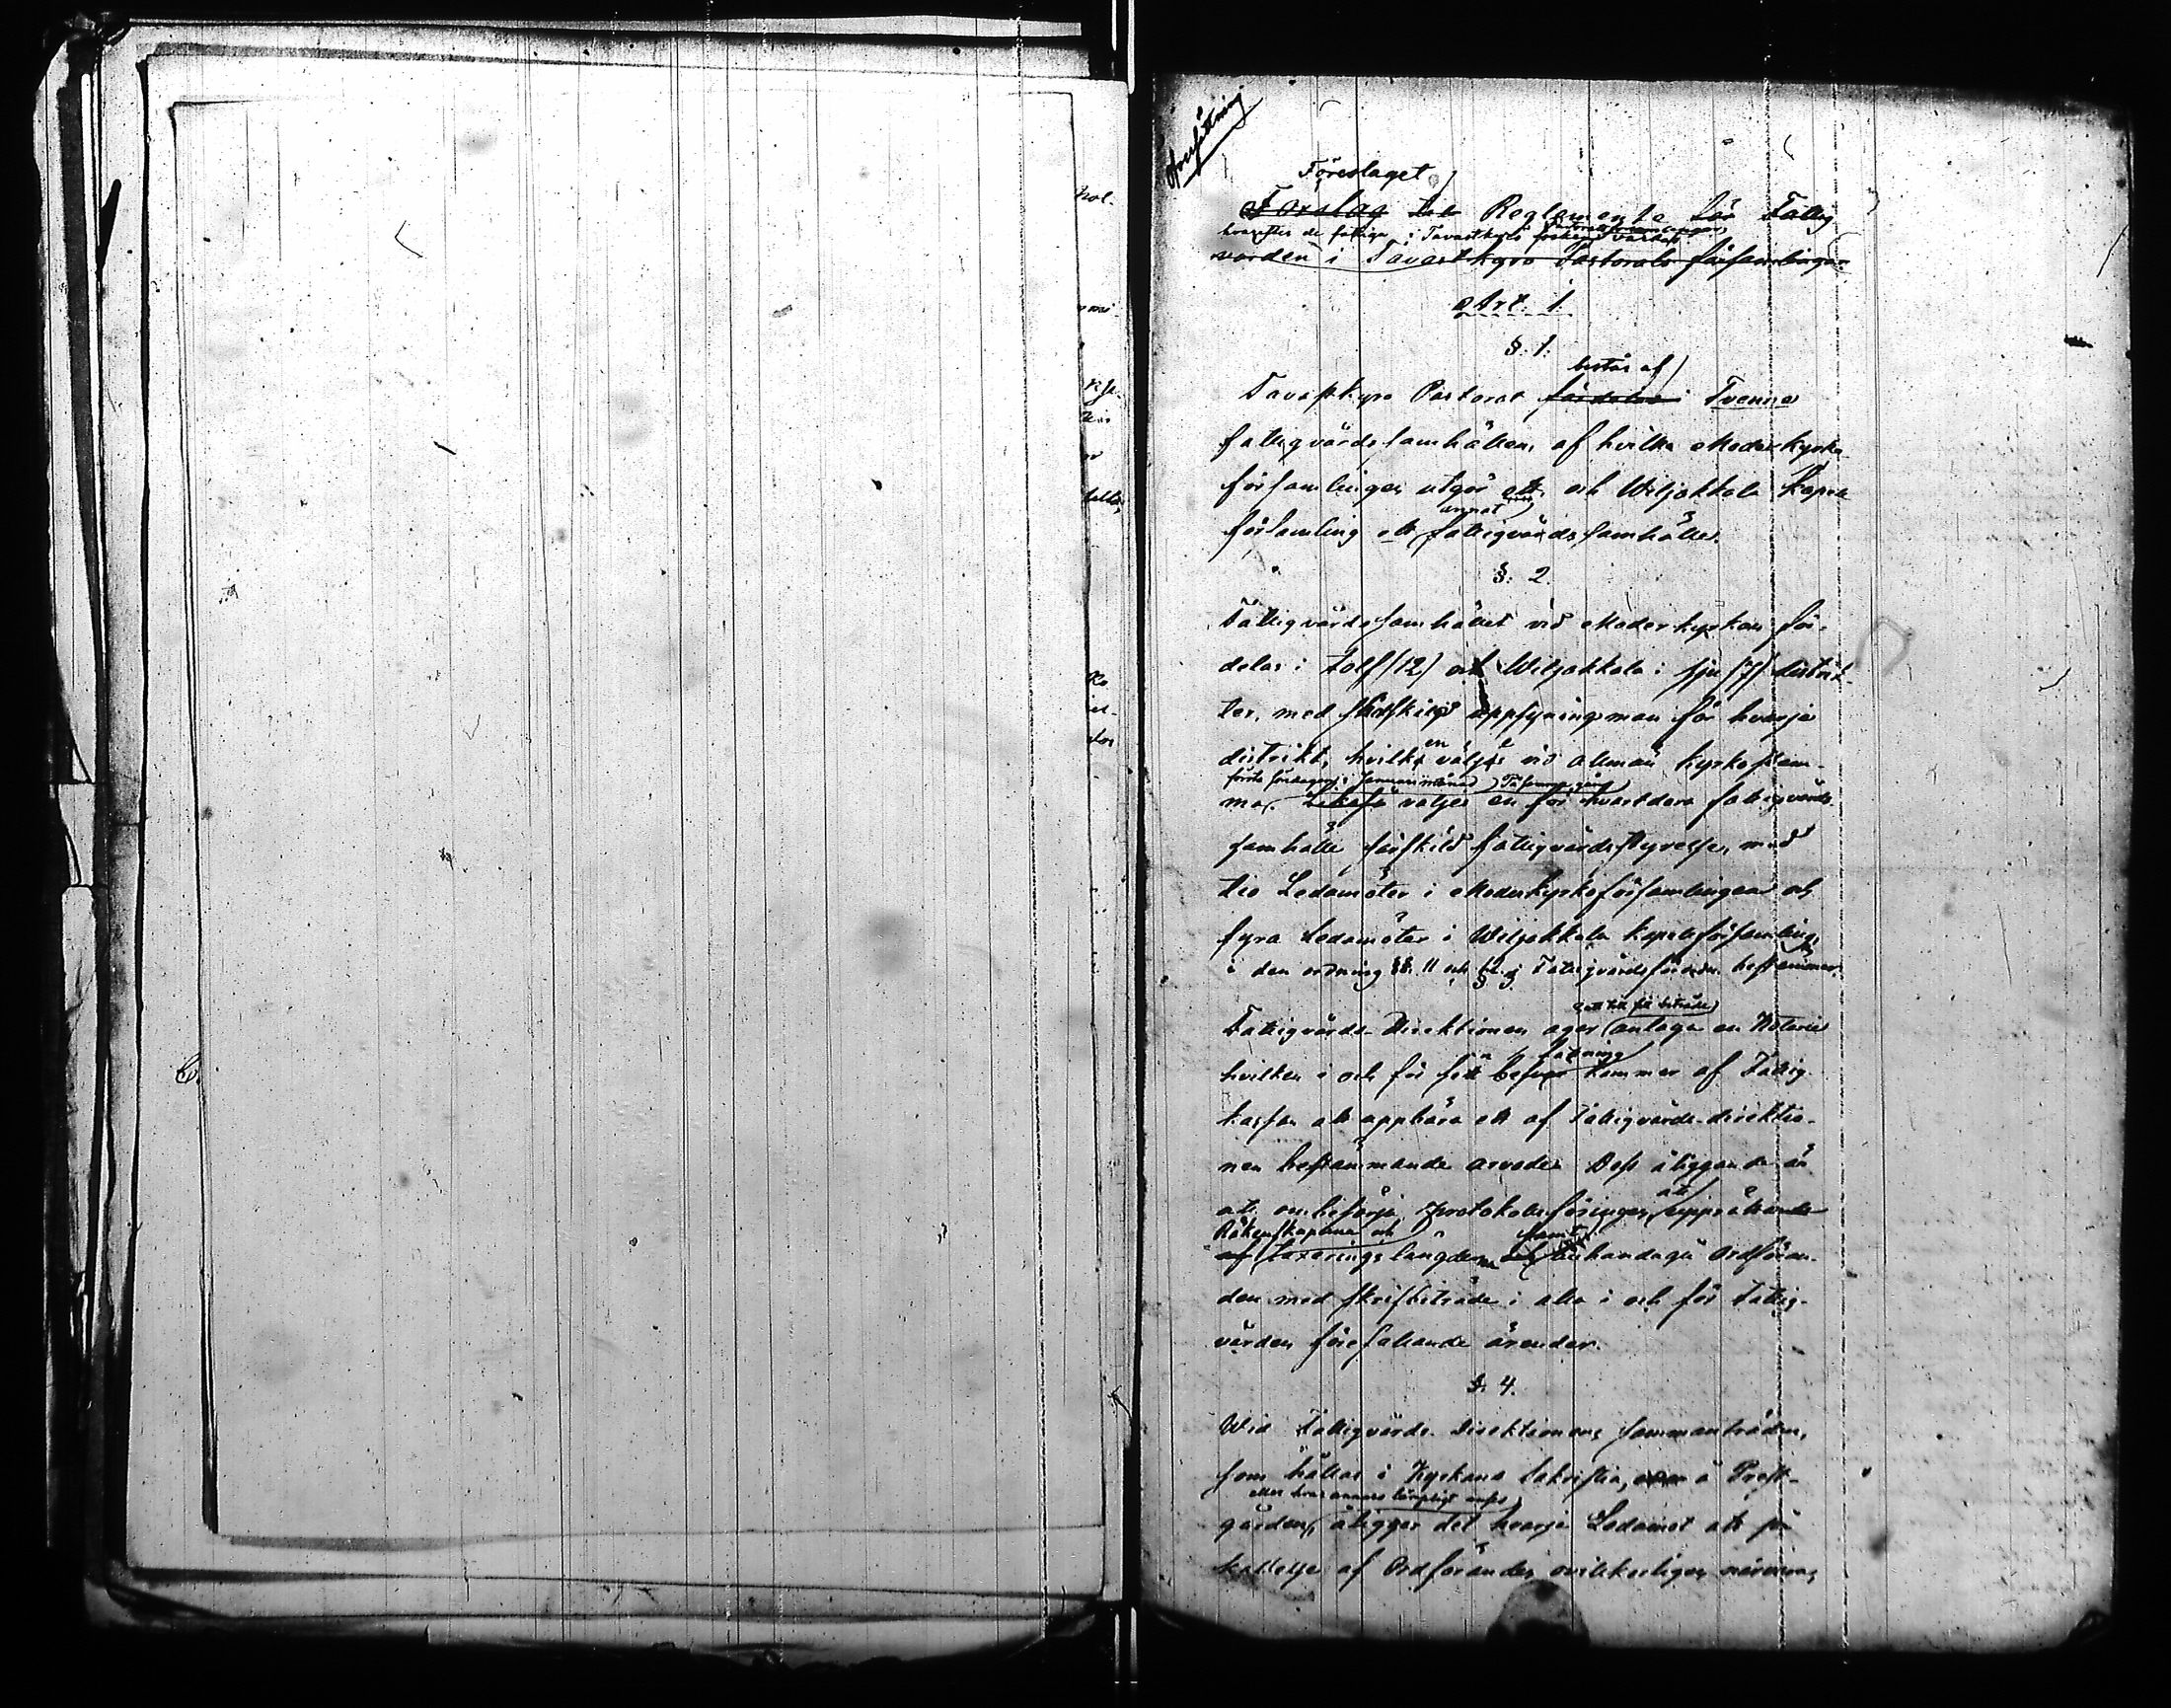 Öfversättning
Föreslaget
Förslag till Reglemente för Fattig
hvarefter de fattige i Tavastkyro vårdas
vården i Tavastkyro Pastorats församlingar
Art. 1.
§. 1.
består af
Tavastkyro Pastorat fördelas i Tvenne
fattigvårdssamhällen, af hvilka Moderkyrko
församlingen utgör ett, och Wiljakkala Kapell
annat
församling ett fattigvårdssamhälle.
§. 2.
Fattigvårdssamhället vid Moderkyrkan för-
delas i tolf (12) och Wiljakkala i sju (7) distrik-
ter, med särskild uppsyningsman för hvarje
en
distrikt, hvilka väljes vid allmän kyrkostäm-
första söndagen i Januari månad På samma gång
ma. Likaså väljes en för hvartdera fattigvårds
samhälle särskild fattigvårdsstyrelse, med
tio Ledamöter i Moderkyrkoförsamlingen och
fyra Ledamöter i Wiljakkala kapellförsamling,
i den ordning §§. 11 och 12 i Fattigvårdsförordn. bestämmer.
§ 3.
Fattigvårds-Direktionen eger antaga en Notarie
hvilken i och för sitt besvär kommer af Fattig-
kassan att uppbära ett af Fattigvårds-direktio-
nen bestämmande arvode. Dess åliggande är
att
att ombesörja protokollsföringen, upprättande
Räkenskaperna och samt
af taxeringslängderna och tillhandagå Ordföran-
den med skrifbiträde i alla i och för Fattig-
vården förefallande ärender.
§. 4.
Wid Fattigvårds-Direktionens sammanträden,
som hållas i Kyrkans Sakristia, eller å Prest-
eller hvar annars lämpligt anses
gården, åligger det hvarje Ledamot att på
kallelse af Ordföranden ovilkorligen närvara,